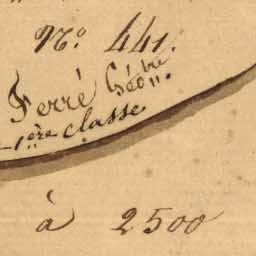 No. 441.
Ferré Géobre".
1ère classe
à 2500